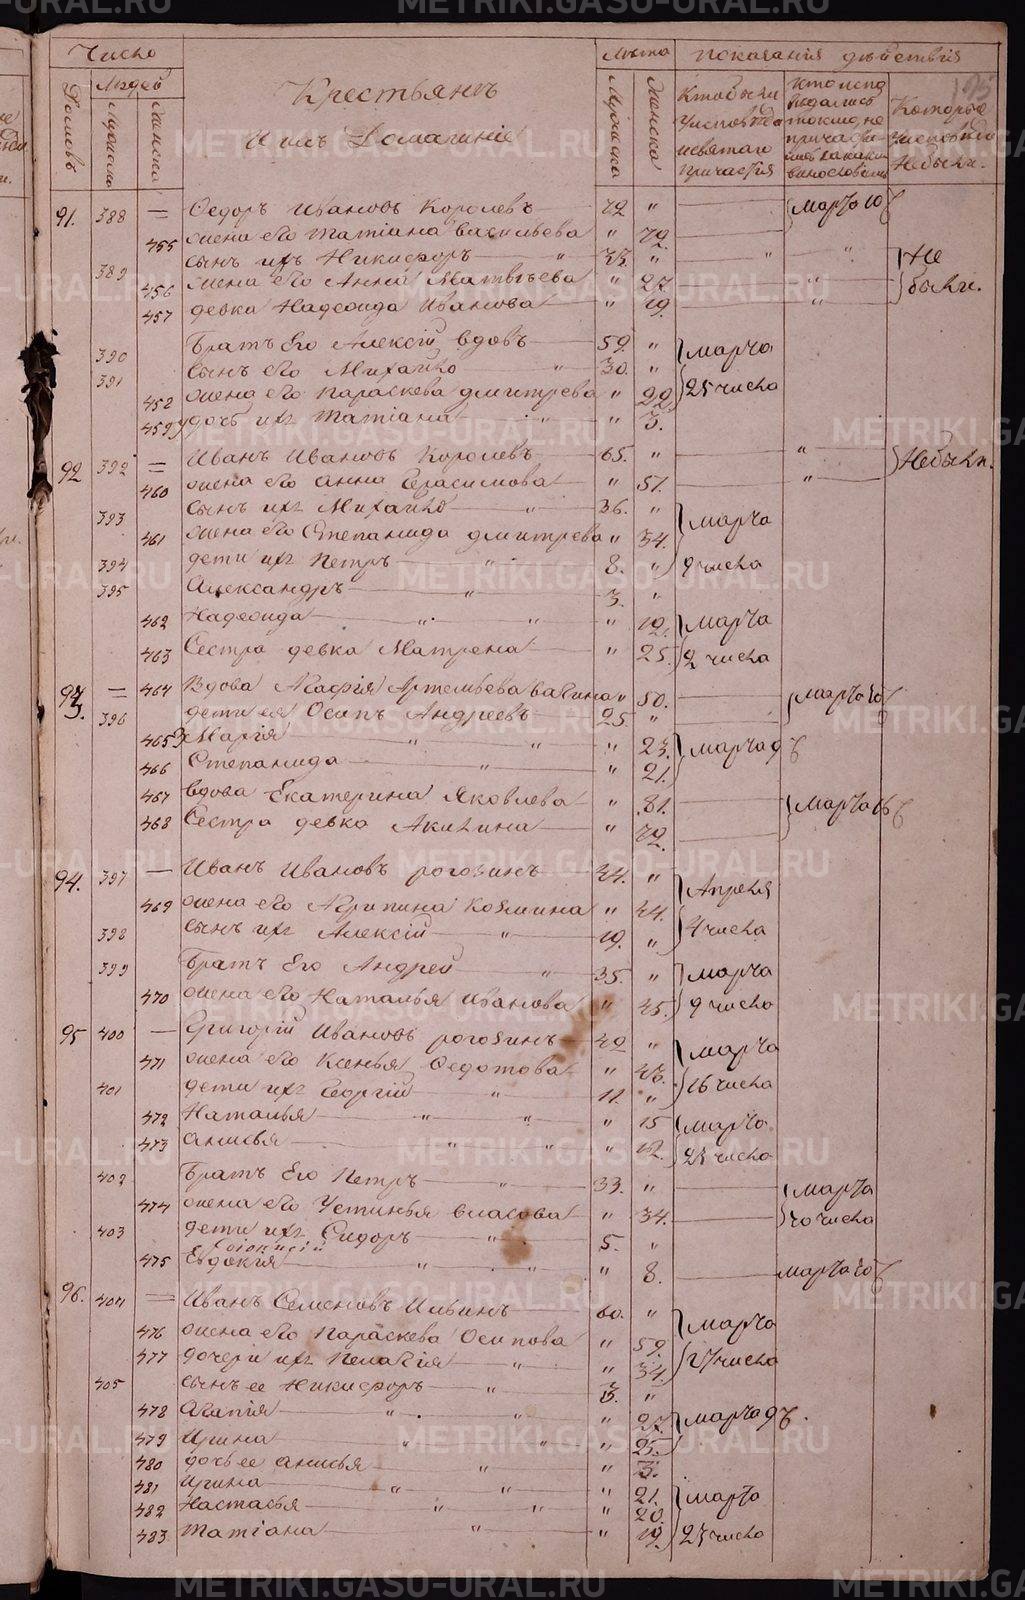 Число
Лѣта
показанія дѣйствія
Домовъ
Людей
Мужеска
Женска
Крестьянъ
И ихъ Домашніе
Мужеска
Женска
Кто были
у исповѣди
и святаго
причастія
Которые
у исповѣди
не были.
91. 388 Ѳедоръ Ивановъ Королевъ 72 " Марта 10
455 жена его Татіана Васильева " 72
389 сынъ ихъ Никифоръ " 35 " " " Не
456 жена его Анна Матвѣева " 27. " были.
457 девка Надежда Иванова " 19. "
390 Братъ Его Алексій вдовъ 59. " марта
391 сынъ его Михайло " 30. " 25 числа
458 жена его Параскева Дмитрева " 29
459 дочь ихъ Татіана " " 3.
92 392 Иванъ Ивановъ Королевъ 65. " " Небыли.
460 жена его Анна Герасимова " 51. "
393 сынъ ихъ Михайло " 36. " марта
461 жена его Степанида Дмитрева " 34.
394 дети ихъ Петръ " 8. " 9 числа
395 Александръ " 3. "
462 Надежда " " " 12. марта
463 Сестра девка Матрена " 25. 2 числа
93. 464 Вдова Агафія Артемьева " 50.
396 дети ея Осипъ Андреевъ 25 "
465 Марія " " " 23. марта 9
466 Степанида " " 21.
467 вдова Екатерина Яковлева " 81. марта 16
468 Сестра девка Акилина " 72.
94. 397 Иванъ Ивановъ Рогозинъ 44. " Апреля
469 жена его Агрипина Козмина " 44.
398 сынъ ихъ Алексій " 19. " 4 числа
399 Братъ Его Андрей " 35. " марта
470 жена его Наталья Иванова " 45. 9 числа
95 400 Григорій Ивановъ Рогозинъ 42 " марта
471 жена его Ксенья Ѳедотова " 43.
401 дети ихъ Георгій " 11. " 16 числа
472 Наталья " " " 15 марта
473 Анисья " " " 12. 25 числа
402 Братъ Его Петръ " 33. " марта
474 жена его Устинья Власова " 34. 10 числа
403 дети ихъ Сидоръ " 5. "
475 Евдокія " " " 8. марта 10
96. 404 Иванъ Семеновъ Ильинъ 60. " марта
476 жена его Параскева Осипова " 59.
477 дочери ихъ Пелагія " " 34. 17 числа
405 сынъ ее Никифоръ " 3. "
478 Агапія " " " 27. марта 9
479 Ирина " " " 25.
480 дочь ее Анисья " " 3.
481 Ирина " " " 21. марта
482 Настасья " " " 20.
483 Татіана " " 19. 25 числа
METRIKI.GASO-URAL.RU